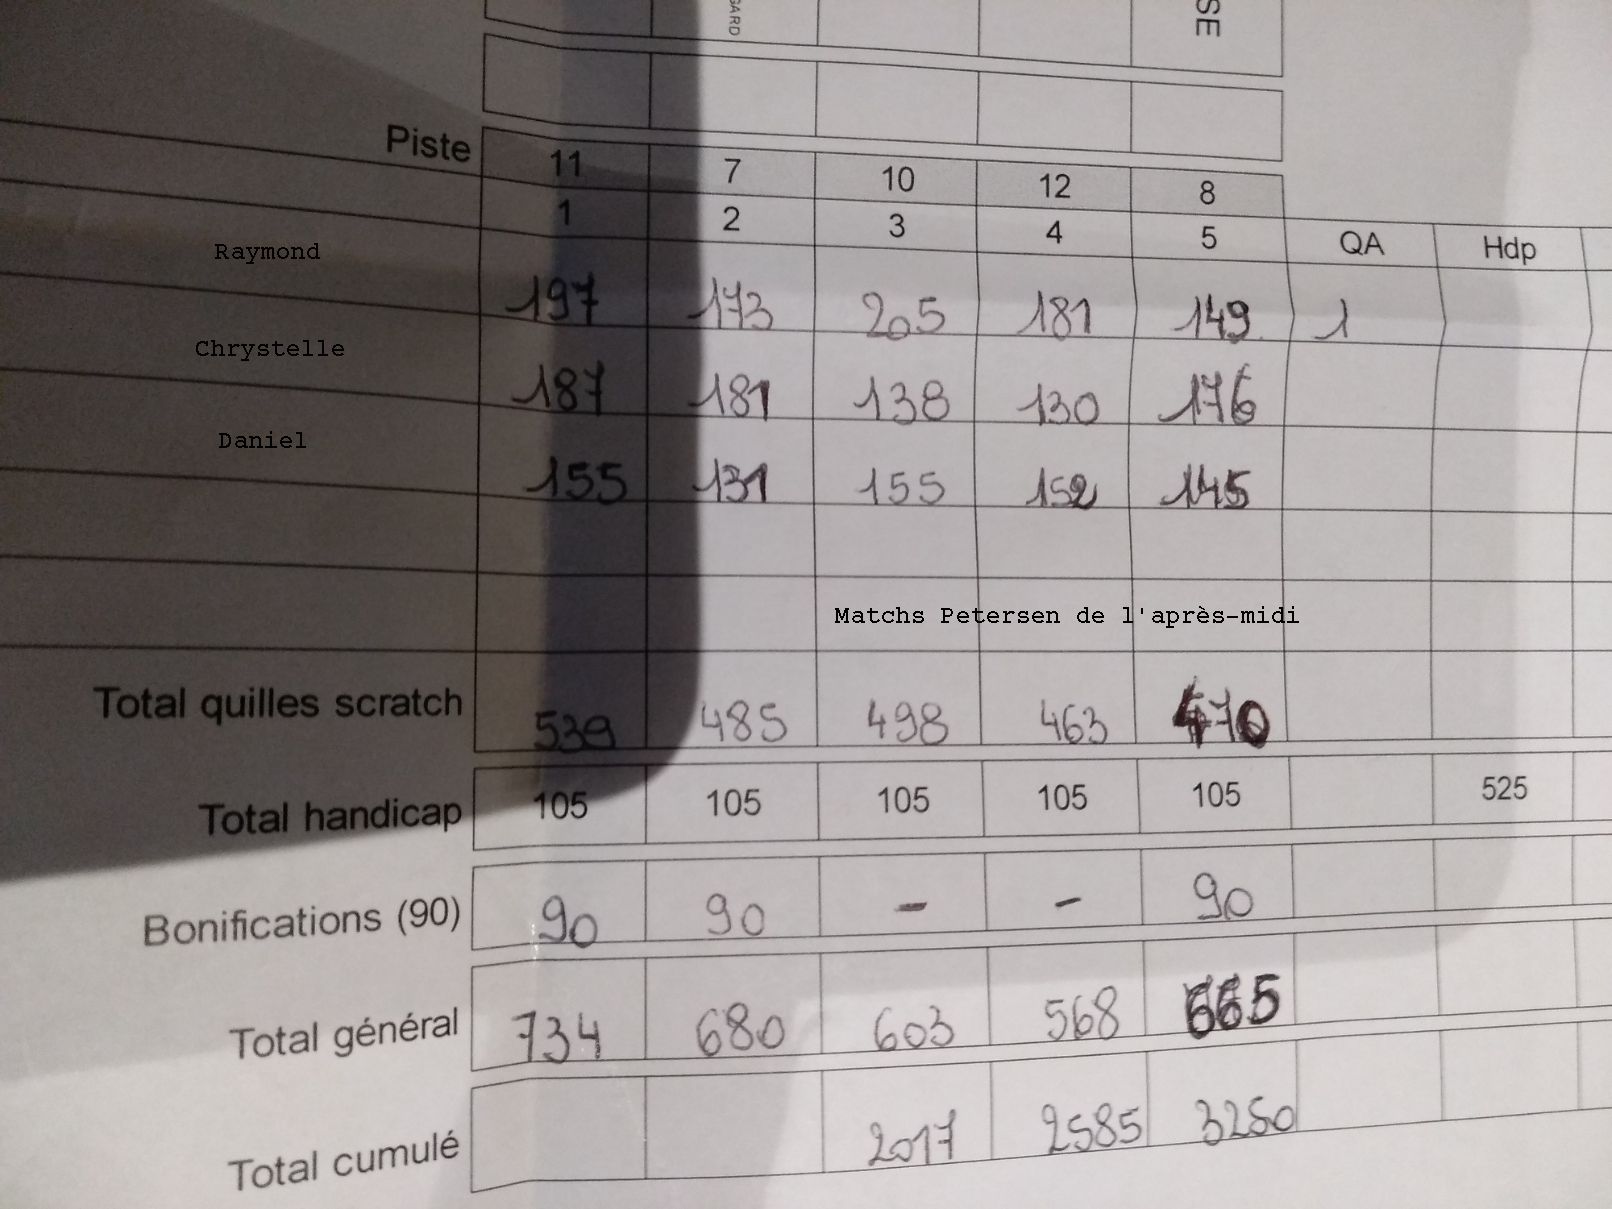 GARD
SE
Piste 11 7 10 12 8
1 2 3 4 5 QA Hdp
Raymond 197 173 205 181 149 1
Chrystelle 187 181 138 130 176
Daniel 155 131 155 152 145
Matchs Petersen de l'après-midi
Total quilles scratch 539 485 498 463 470
Total handicap 105 105 105 105 105 525
Bonifications (90) 90 90 - - 90
Total général 734 680 603 568 665
Total cumulé 2017 2585 3250